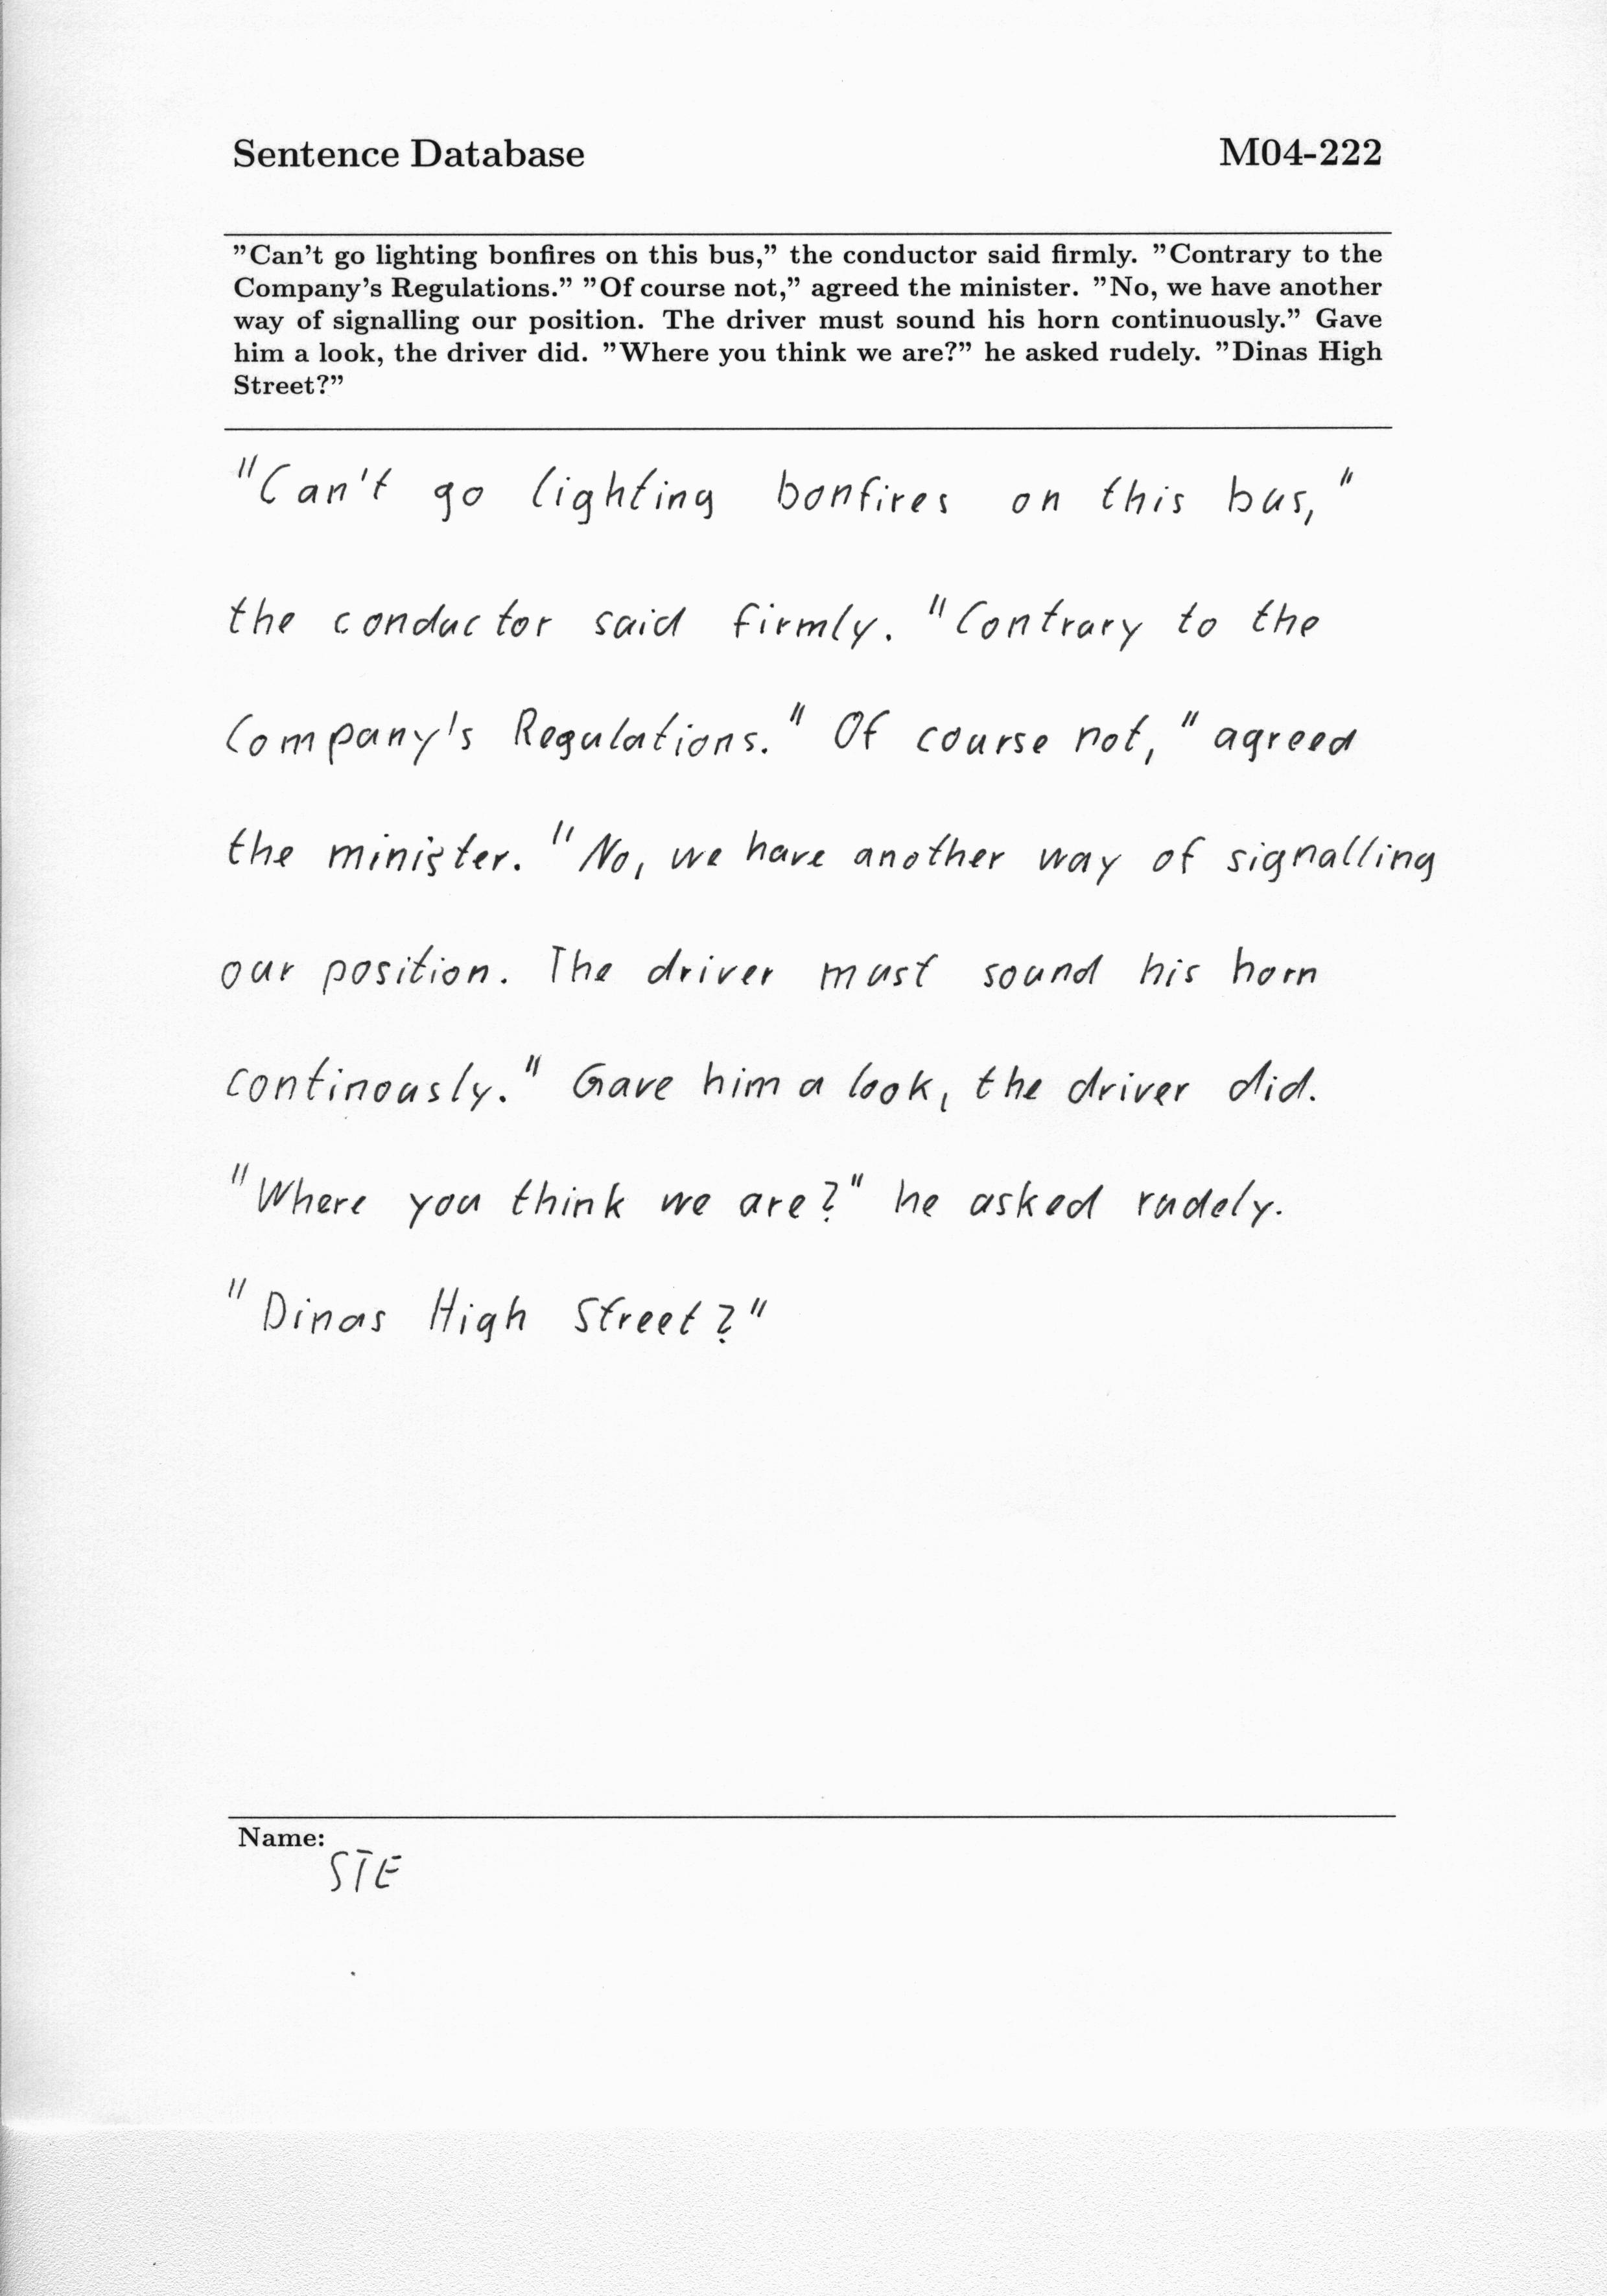 Sentence Database M04-222
"Can't go lighting bonfires on this bus," the conductor said firmly. "Contrary to the
Company's Regulations." "Of course not," agreed the minister. "No, we have another
way of signalling our position. The driver must sound his horn continuously." Gave
him a look, the driver did. "Where you think we are?" he asked rudely. "Dinas High
Street?"
"Can't go lighting bonfires on this bus,"
the conductor said firmly. "Contrary to the
Company's Regulations." Of course not," agreed
the minister. "No, we have another way of signalling
our position. The driver must sound his horn
continously." Gave him a look, the driver did.
"Where you think we are?" he asked rudely.
"Dinas High Street?"
Name:
STE